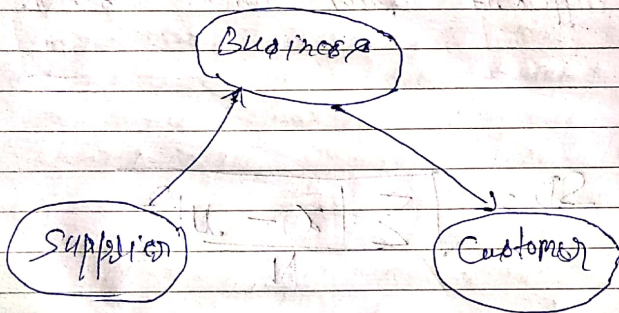 Business
Supplier
Customer